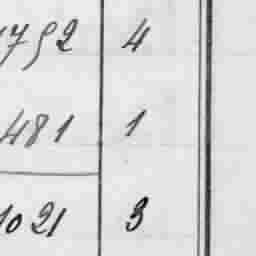 1752 4
481 1
1021 3